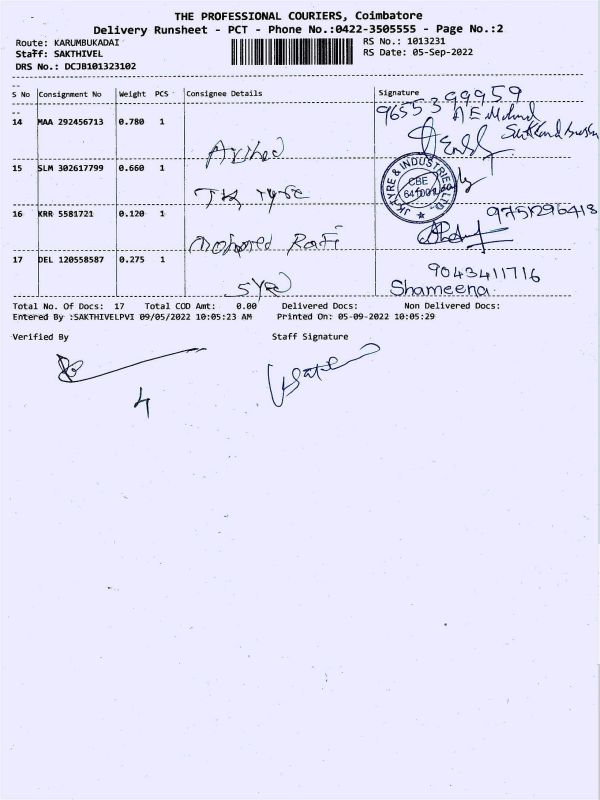 THE PROFESSIONAL COURIERS, Coimbatore
Delivery Runsheet - PCT - Phone No.:0422-3505555 - Page No.:2
Route: KARUMBUKADAI RS No.: 1013231
Staff: SAKTHIVEL RS Date: 05-Sep-2022
DRS No.: DCJB101323102
S No Consignment No Weight PCS Consignee Details Signature
9655399959
14 MAA 292456713 0.780 1
15 SLM 302617799 0.660 1
JK TYRE & INDUSTRIES LTD.
CBE
16 KRR 5581721 0.120 1
Rafi
17 DEL 120558587 0.275 1
9043411716
Shameena
Total No. Of Docs: 17 Total COD Amt: 0.00 Delivered Docs: Non Delivered Docs:
Entered By :SAKTHIVELPVI 09/05/2022 10:05:23 AM Printed On: 05-09-2022 10:05:29
Verified By Staff Signature
4